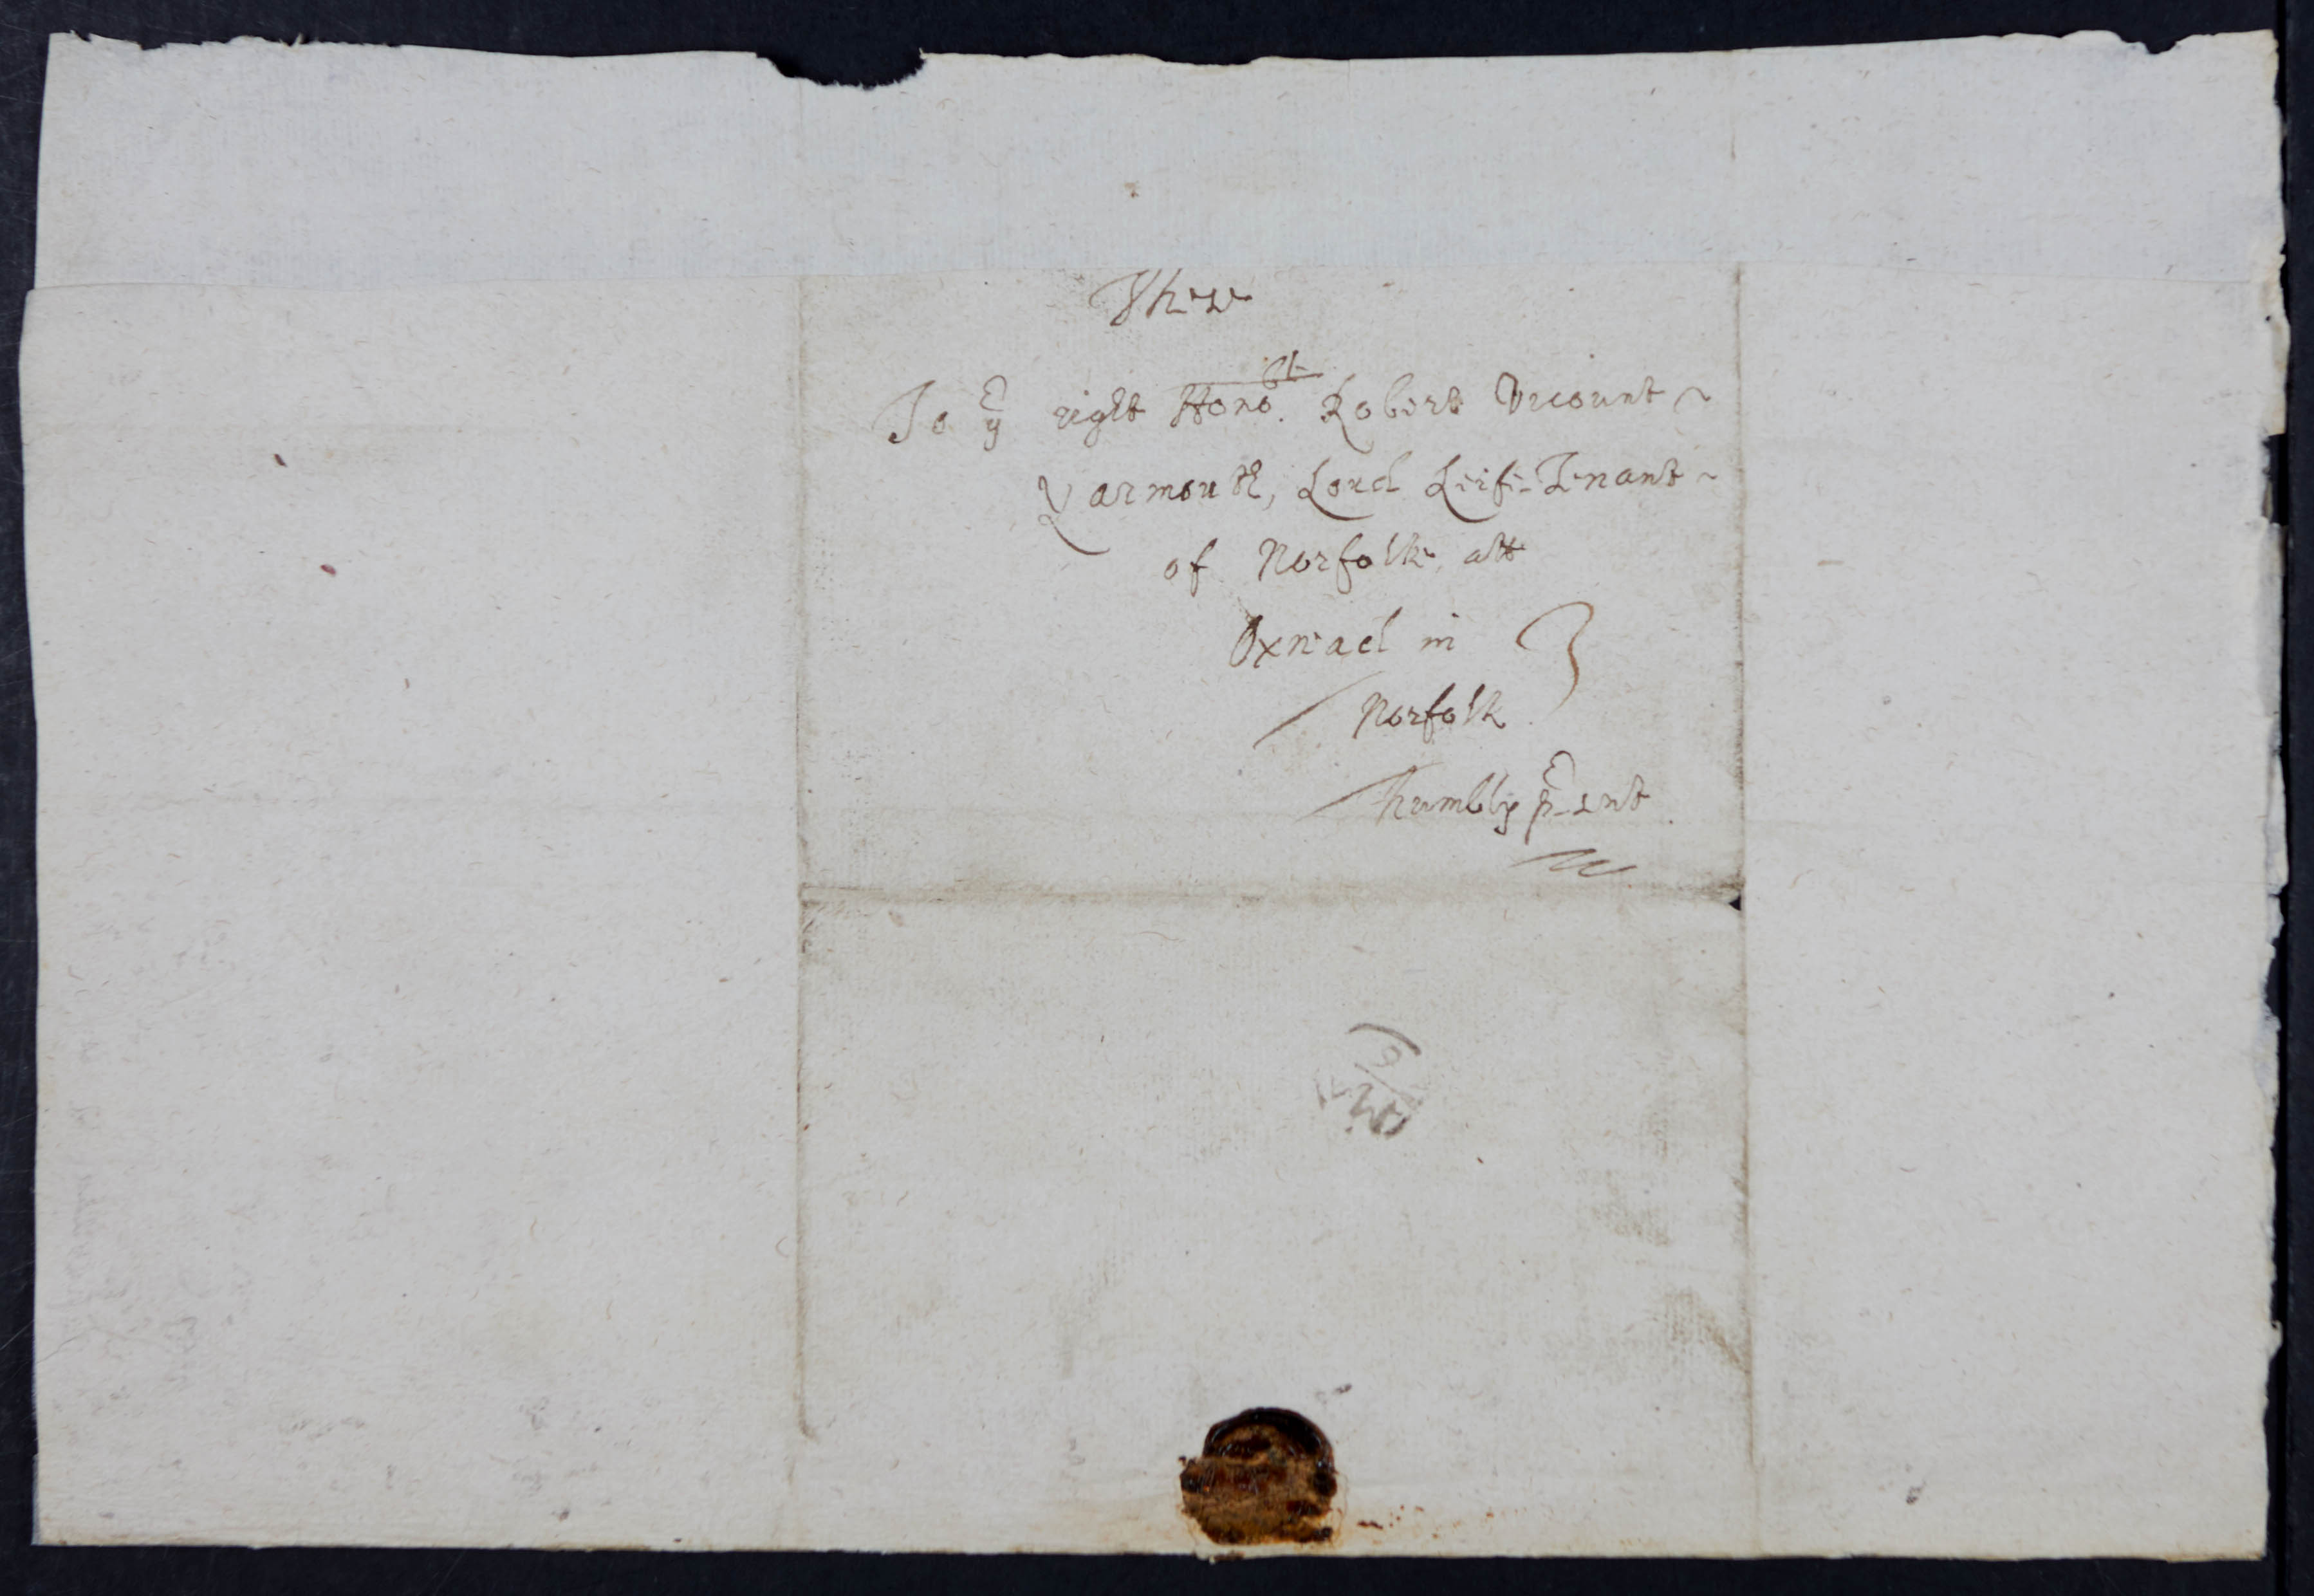 These
To ye right Honoble. Robert Vicount ~
Yarmouth, Lord Leife-Tenant ~
of Norfolke, att
Oxnead in
Norfolk
humbly p~sent.